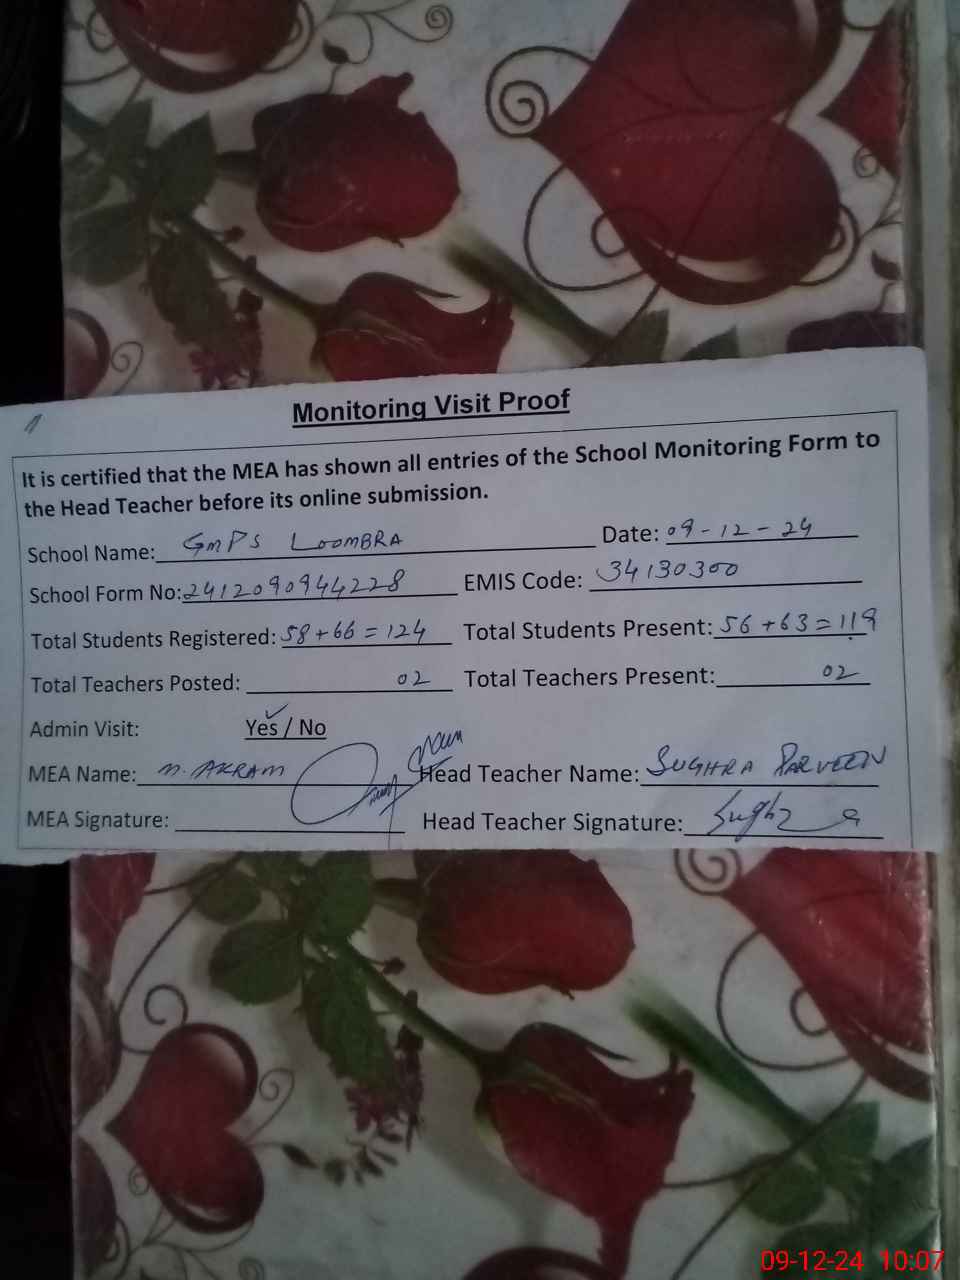 Monitoring Visit Proof
It is certified that the MEA has shown all entries of the School Monitoring Form to
the Head Teacher before its online submission.
School Name: GMPS LOOMBRA Date: 09-12-24
School Form No: 2412090944228 EMIS Code: 34130300
Total Students Registered: 58+66=124 Total Students Present: 56+63=119
Total Teachers Posted: 02 Total Teachers Present: 02
Admin Visit: Yes / No
MEA Name: M. AKRAM Head Teacher Name: SUGHRA PARVEEN
MEA Signature: Head Teacher Signature:
09-12-24 10:07